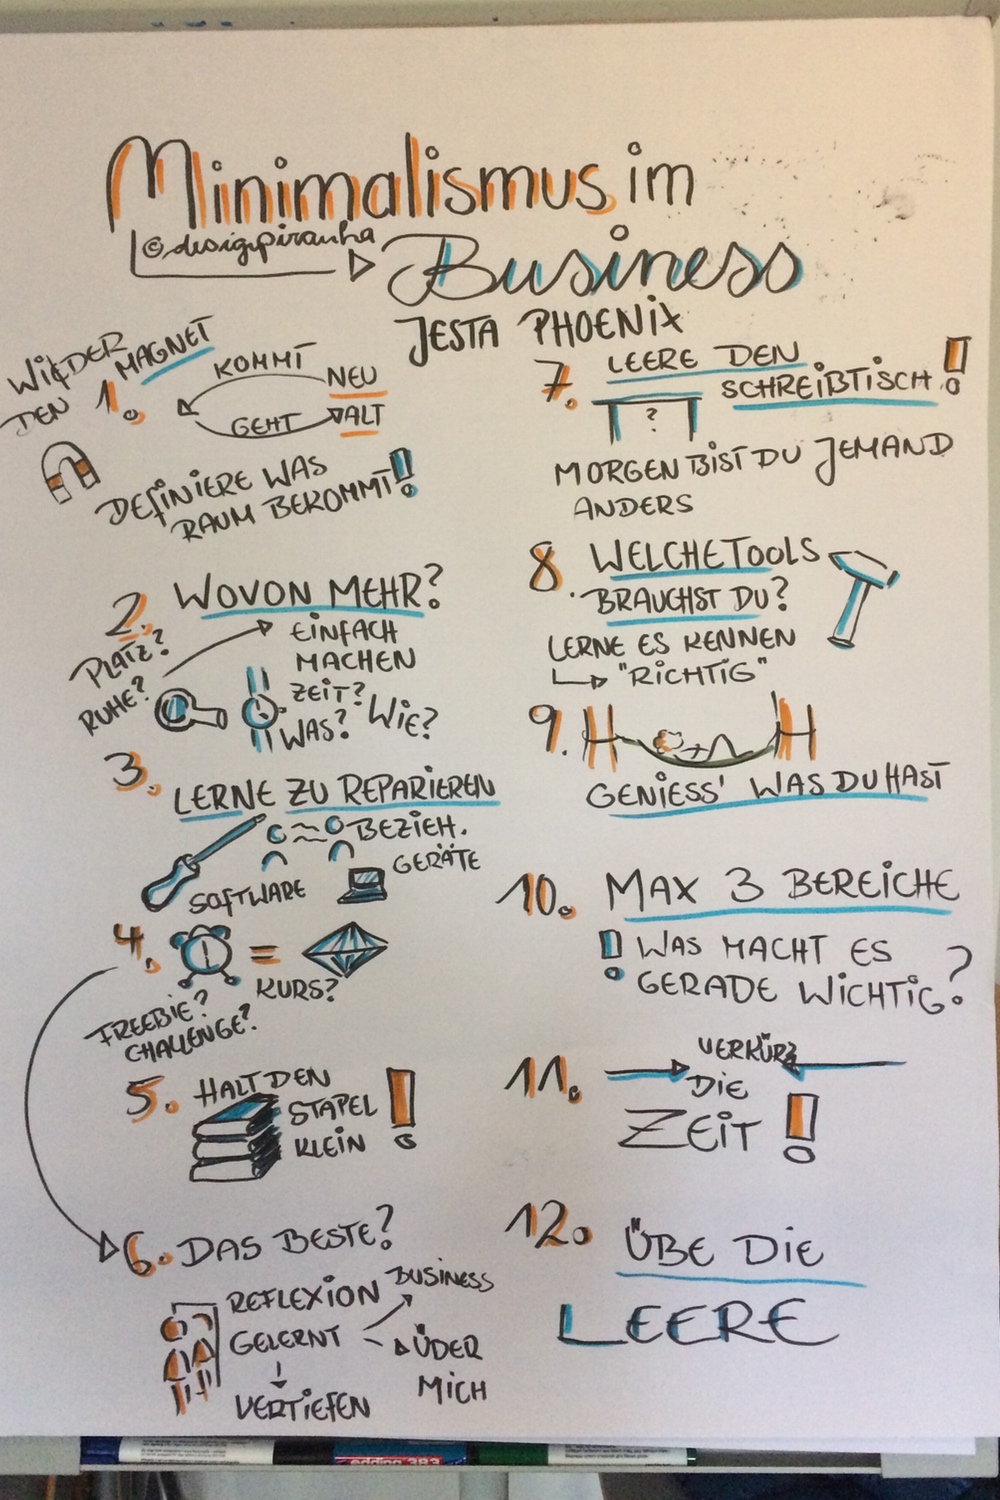 Minimalismus im
©designpiranha
Business
JESTA PHOENIX
WIDER
DEN
1. MAGNET
KOMMT
NEU
GEHT
ALT
DEFINIERE WAS
RAUM BEKOMMT!
2. WOVON MEHR?
PLATZ?
RUHE?
EINFACH
MACHEN
ZEIT?
WAS? WIE?
3. LERNE ZU REPARIEREN
BEZIEH.
GERÄTE
SOFTWARE
4. =
KURS?
FREEBIE?
CHALLENGE?
5. HALT DEN
STAPEL
KLEIN !
6. DAS BESTE?
REFLEXION
BUSINESS
GELERNT
ÜBER
MICH
VERTIEFEN
7. LEERE DEN
SCHREIBTISCH!
?
MORGEN BIST DU JEMAND
ANDERS
8. WELCHE TOOLS
BRAUCHST DU?
LERNE ES KENNEN
"RICHTIG"
9.
GENIESS' WAS DU HAST
10. MAX 3 BEREICHE
! WAS MACHT ES
GERADE WICHTIG?
11. VERKÜRZ
DIE
ZEIT !
12. ÜBE DIE
LEERE
edding 383